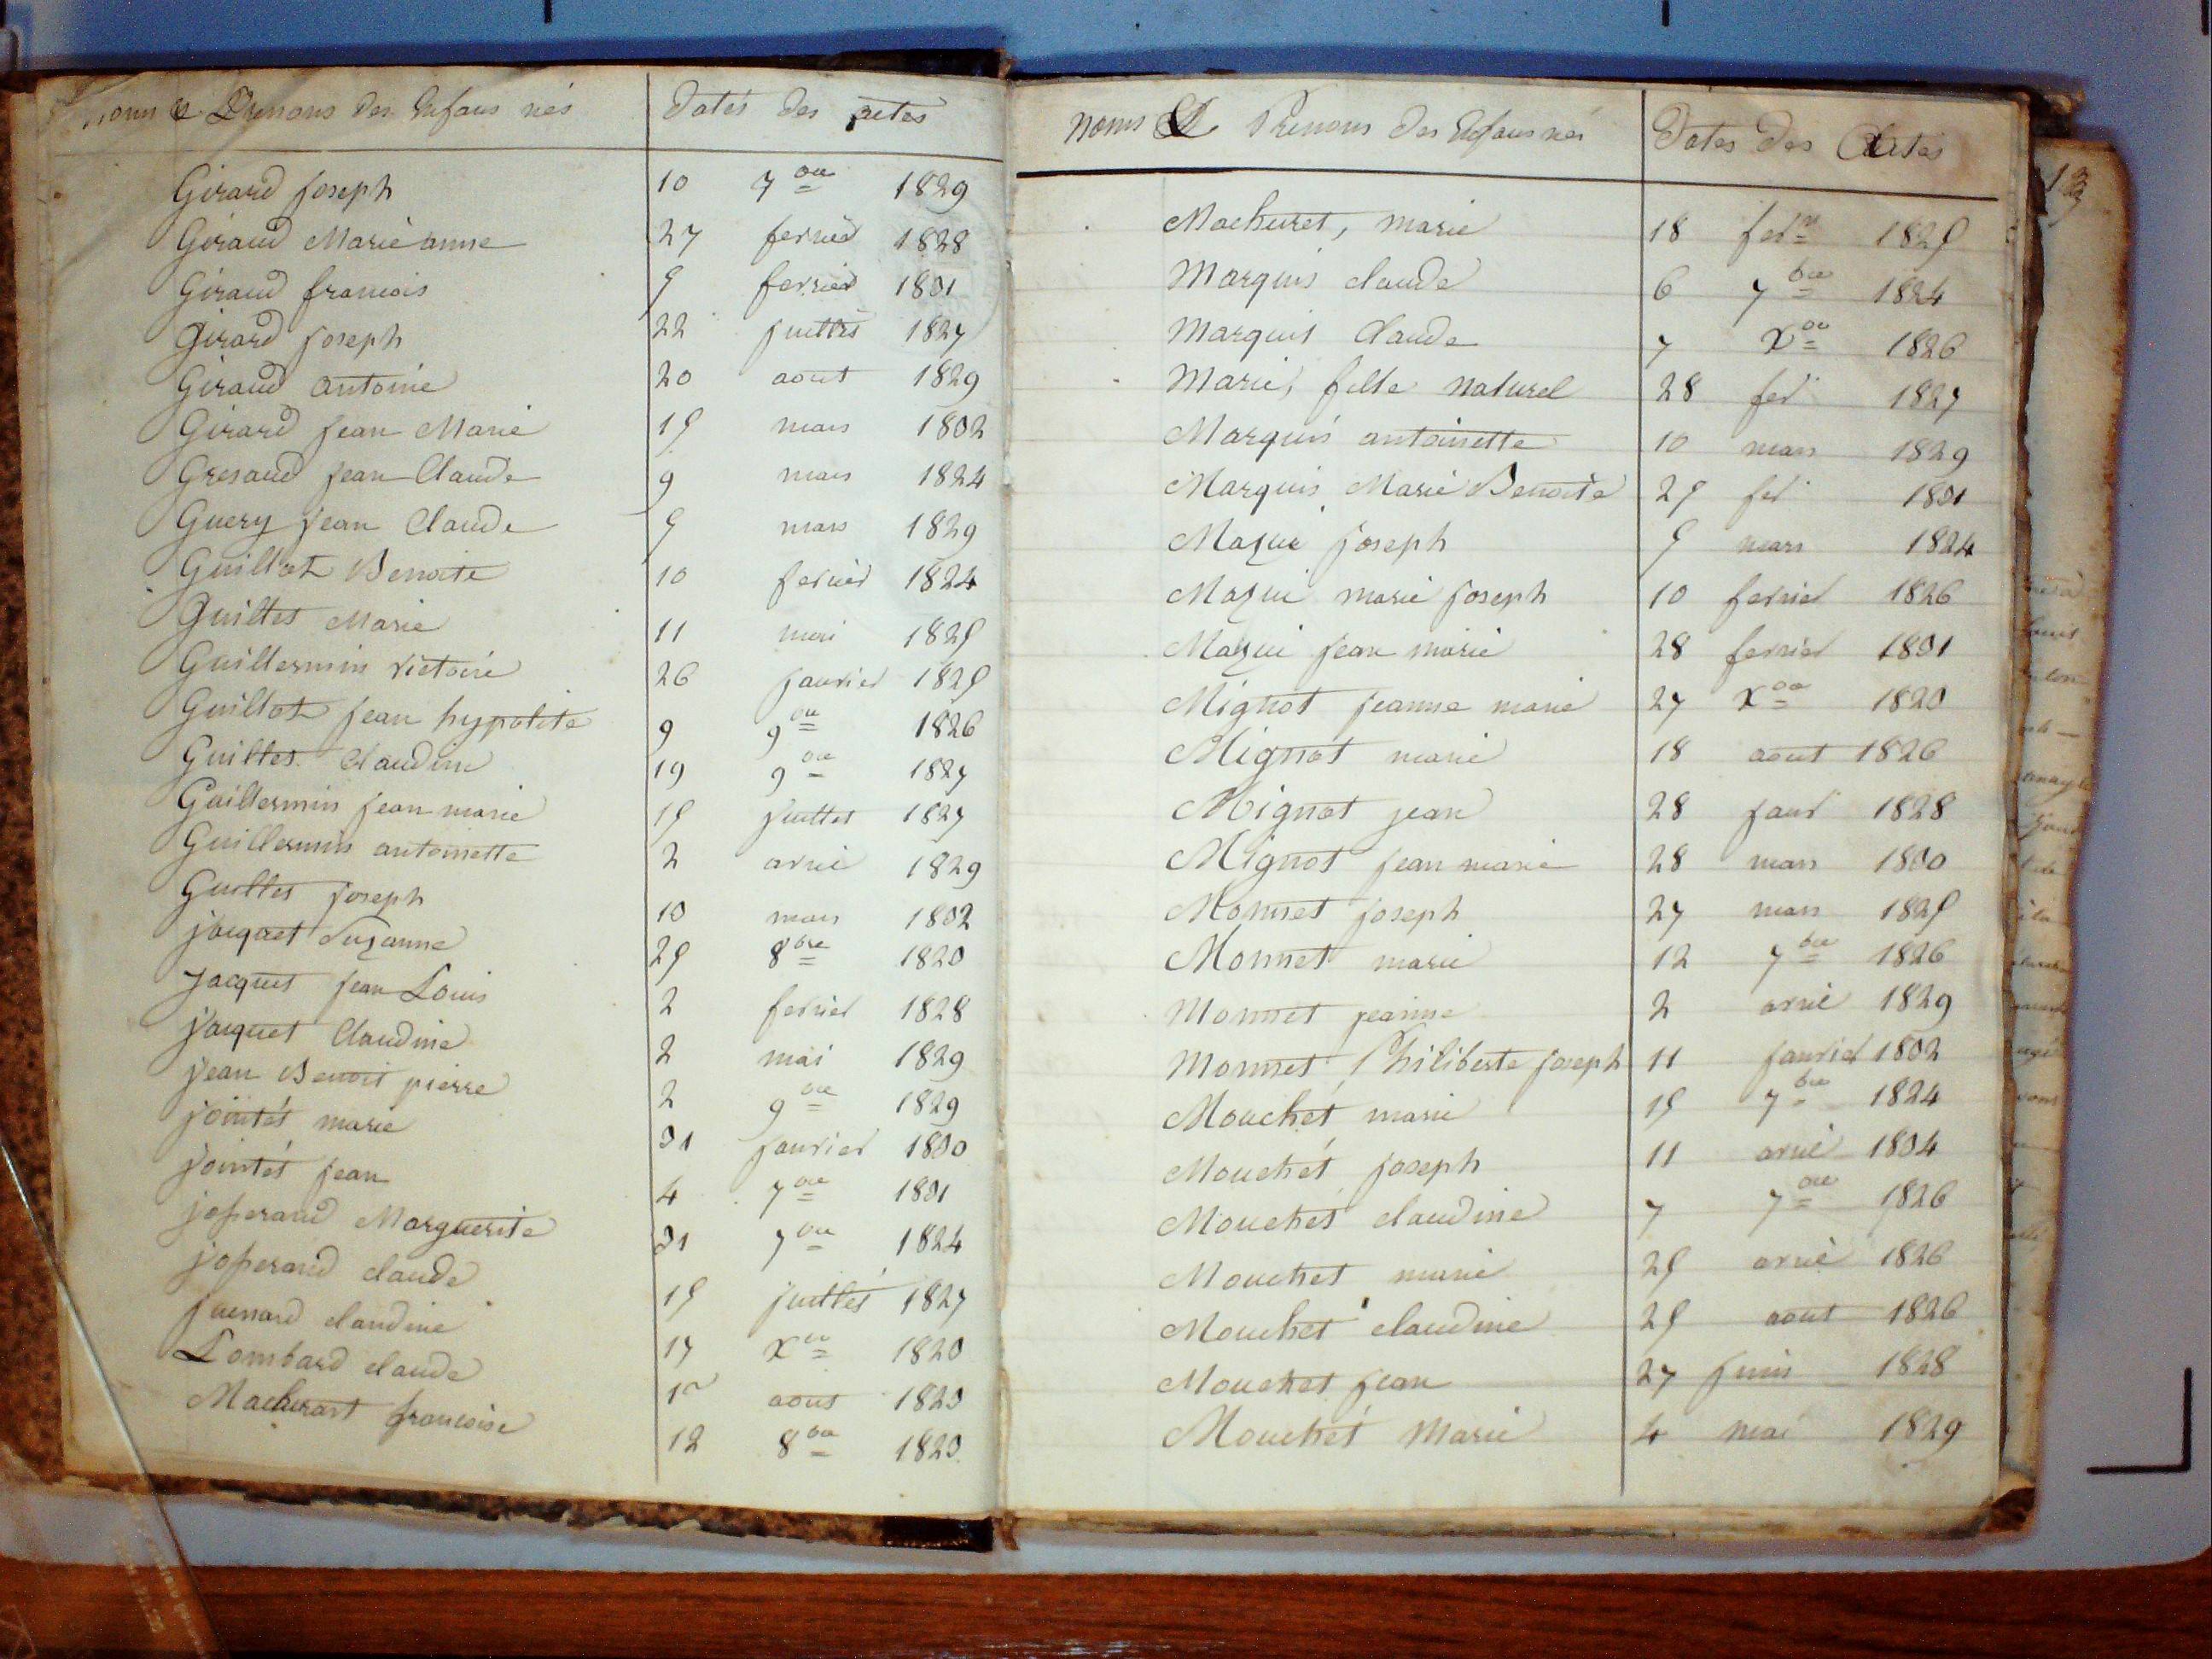 noms & Prenoms des Enfans nés Dates des actes
Girard joseph 10 7bre 1829
Giraud Marie anne 27 fevrier 1828
Giraud francois 5 fevrier 1831
Girard joseph 22 juillet 1827
Giraud antoine 20 aout 1829
Girard jean Marie 15 mars 1832
Gresaud jean Claude 9 mars 1824
Guery jean Claude 5 mars 1829
Guillot Benoite 10 fevrier 1824
Guillet Marie 11 mai 1825
Guillermin victoire 26 janvier 1825
Guillot jean hypolite 9 9bre 1826
Guillet Claudine 19 9bre 1827
Guillermin jean marie 15 juillet 1827
Guillermin antoinette 2 avril 1829
Guillet joseph 10 mars 1832
jacquet Suzanne 25 8bre 1823
Jacquet jean Louis 2 fevrier 1828
jacquet Claudine 2 mai 1829
jean Benoit pierre 2 9bre 1829
jointét marie 31 janvier 1830
jointét jean 4 7bre 1831
josserand Marguerite 31 7bre 1824
josserand claude 15 juillet 1827
juenard claudine 17 Xbre 1823
Lombard claude 1er aout 1823
Machurat francoise 12 8bre 1823
noms & Prenoms des Enfans nés Dates des Actes
Machuret, marie 18 fevr 1825
Marquis claude 6 7bre 1824
Marquis Claude 7 Xbre 1826
Marie, fille naturel 28 fev 1827
Marquis antoinette 10 mars 1829
Marquis Marie Benoite 25 fev 1831
Mazui joseph 5 mars 1824
Mazui marie joseph 10 fevrier 1826
Mazui jean marie 28 fevrier 1831
Mignot jeanne marie 27 Xbre 1823
Mignot marie 18 aout 1826
Mignot jean 28 janv 1828
Mignot jean marie 28 mars 1830
Monnet joseph 27 mars 1825
Monnet marie 12 7bre 1826
Monnet jeanne 2 avril 1829
Monnet Philiberte joseph 11 janvier 1832
Mouchet marie 15 7bre 1824
Mouchet joseph 11 avril 1834
Mouchet claudine 7 7bre 1826
Mouchet marie 25 avril 1826
Mouchet claudine 25 aout 1826
Mouchet jean 27 juin 1828
Mouchet Marie 4 mai 1829